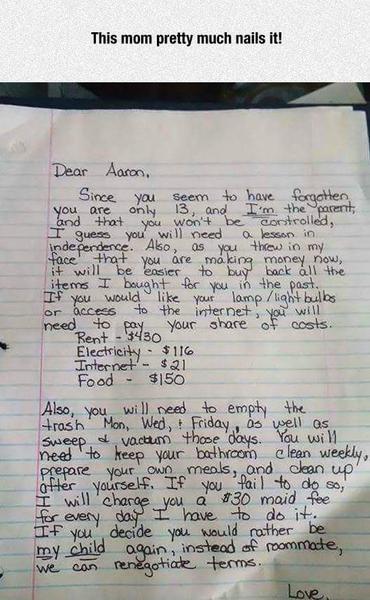 This mom pretty much nails it!
Dear Aaron,
Since you seem to have forgotten
you are only 13, and I'm the parent,
and that you won't be controlled,
I guess you will need a lesson in
independence. Also, as you threw in my
face that you are making money now,
it will be easier to buy back all the
items I bought for you in the past.
If you would like your lamp/light bulbs
or access to the internet, you will
need to pay your share of costs.
Rent - $430
Electricity - $116
Internet - $21
Food - $150
Also, you will need to empty the
trash Mon, Wed, & Friday, as well as
sweep & vacuum those days. You will
need to keep your bathroom clean weekly,
prepare your own meals, and clean up
after yourself. If you fail to do so,
I will charge you a $30 maid fee
for every day I have to do it.
If you decide you would rather be
my child again, instead of roommate,
we can renegotiate terms.
Love,